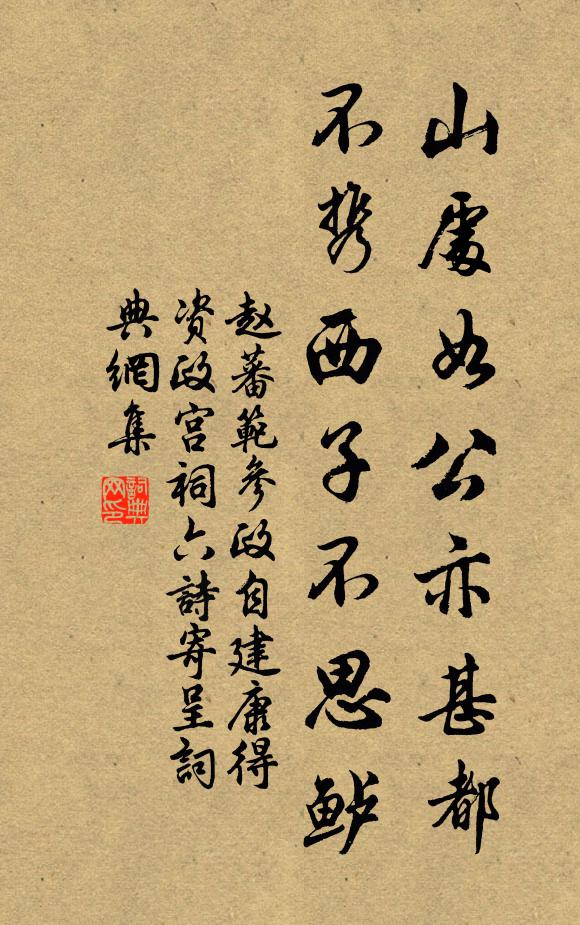 山處如公亦甚都
不携西子不思鲈
赵蕃範參政自建康得
资政宫祠六詩寄呈詞
典網集
詞典网印